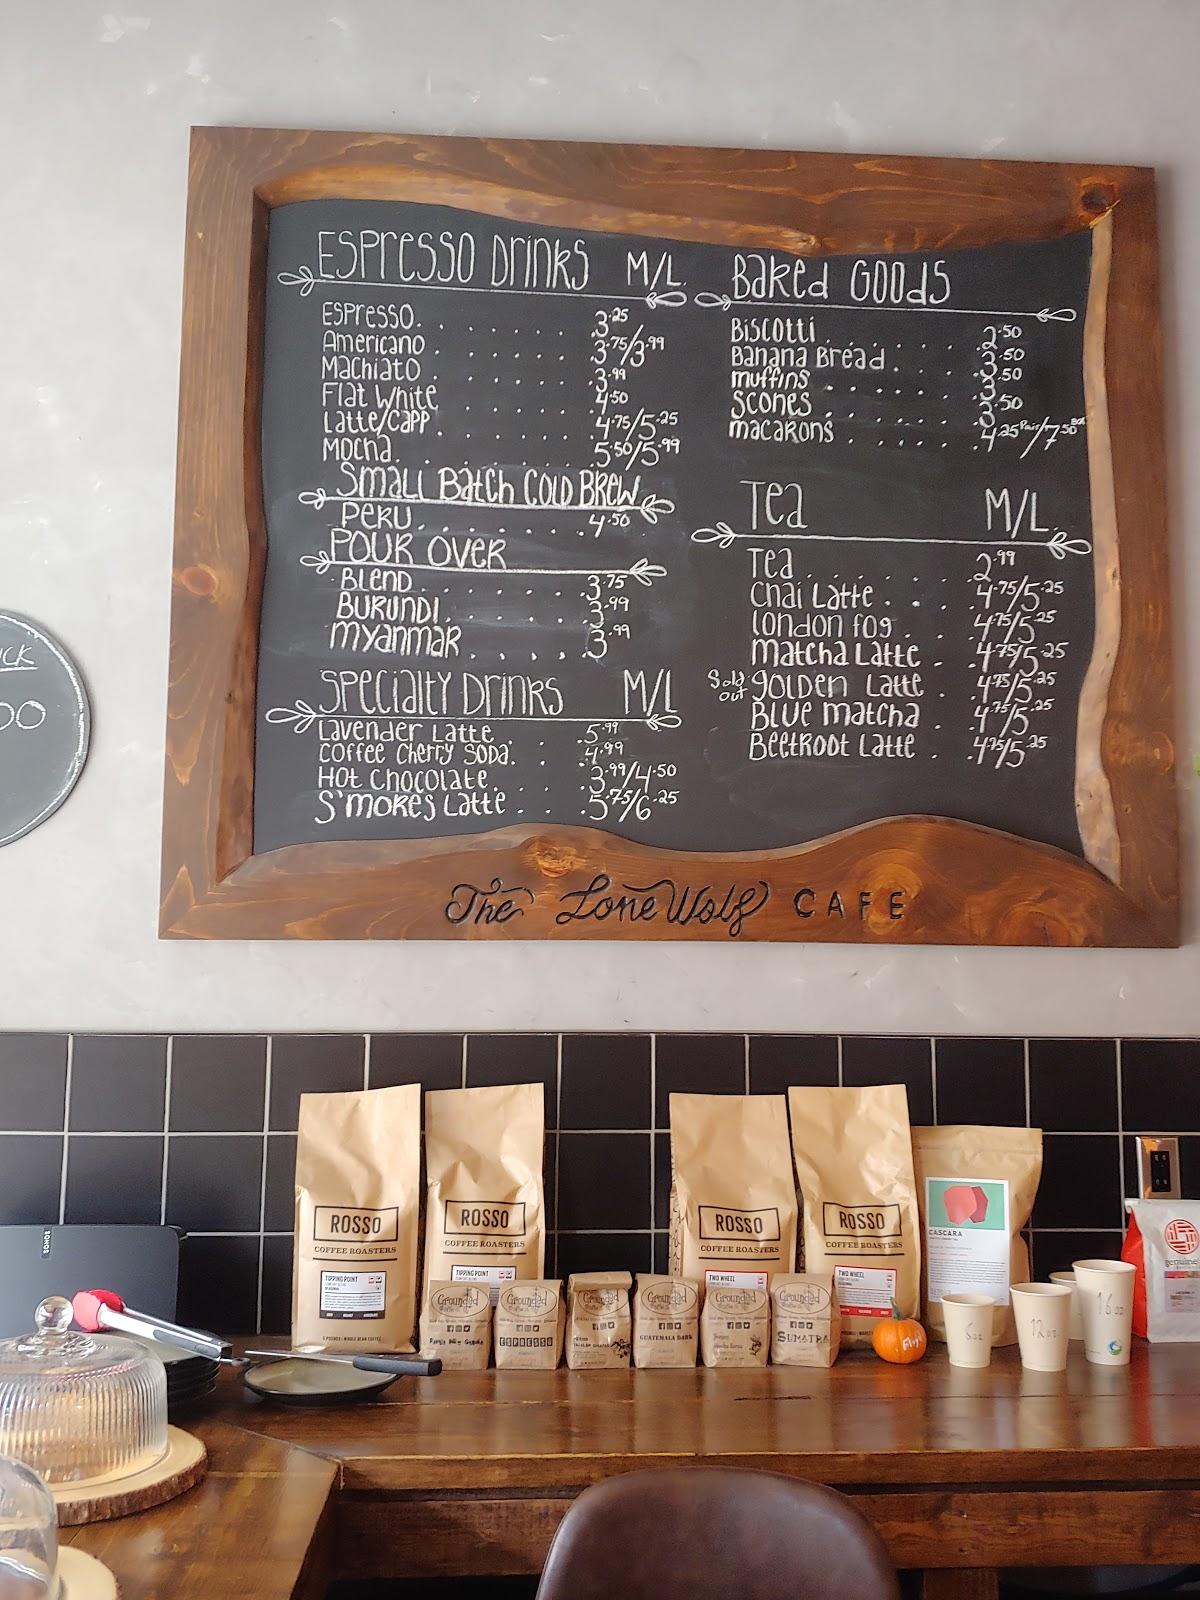 ESPRESSO DRINKS M/L
ESPRESSO. . . . . . . 3.25
Americano . . . . . . 3.75/3.99
Machiato . . . . . . 3.99
Flat White . . . . . 4.50
Latte/Capp . . . . . 4.75/5.25
Mocha. . . . . . . 5.50/5.99
Small Batch Cold Brew
Peru. . . . . . . 4.50
Pour Over
Blend. . . . . . . 3.75
Burundi. . . . . . 3.99
Myanmar . . . . . 3.99
Specialty Drinks M/L
Lavender Latte 5.99
Coffee Cherry Soda. . . 4.99
Hot Chocolate. . . . 3.99/4.50
S'mores Latte . . . 5.75/6.25
Baked Goods
Biscotti . . . . . . 2.50
Banana Bread . . . . 3.50
muffins . . . . . 3.50
scones . . . . . 3.50
macarons . . . . 4.25 Pair/7.50 Box
Tea M/L
Tea . . . . . . 2.99
Chai Latte . . . 4.75/5.25
London Fog . . . 4.75/5.25
Matcha Latte . 4.75/5.25
Sold out Golden Latte . 4.75/5.25
Blue Matcha . 4.75/5.25
Beetroot Latte . 4.75/5.25
The Lone Wolf CAFE
SONOS
ROSSO
COFFEE ROASTERS
TIPPING POINT
5 POUNDS | WHOLE BEAN COFFEE
ROSSO
COFFEE ROASTERS
TIPPING POINT
ROSSO
COFFEE ROASTERS
TWO WHEEL
ROSSO
COFFEE ROASTERS
TWO WHEEL
CASCARA
genuine
Grounded
Grounded
ESPRESSO
Grounded
Grounded
GUATEMALA DARK
Grounded
Grounded
SUMATRA
12 oz
16 oz